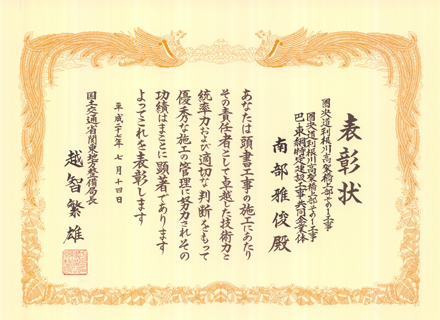 表彰状
圏央道利根川高架橋上部その1工事
圏央道利根川高架橋上部その1工事
巴・東綱特定建設工事共同企業体
南部雅俊殿
あなたは頭書工事の施工にあたり
その責任者として卓越した技術力と
統率力および適切な判断をもって
優秀な施工の管理に努力されその
功績はまことに顕著であります
よってこれを表彰します
平成二十七年七月十四日
国土交通省関東地方整備局長
越智繁雄